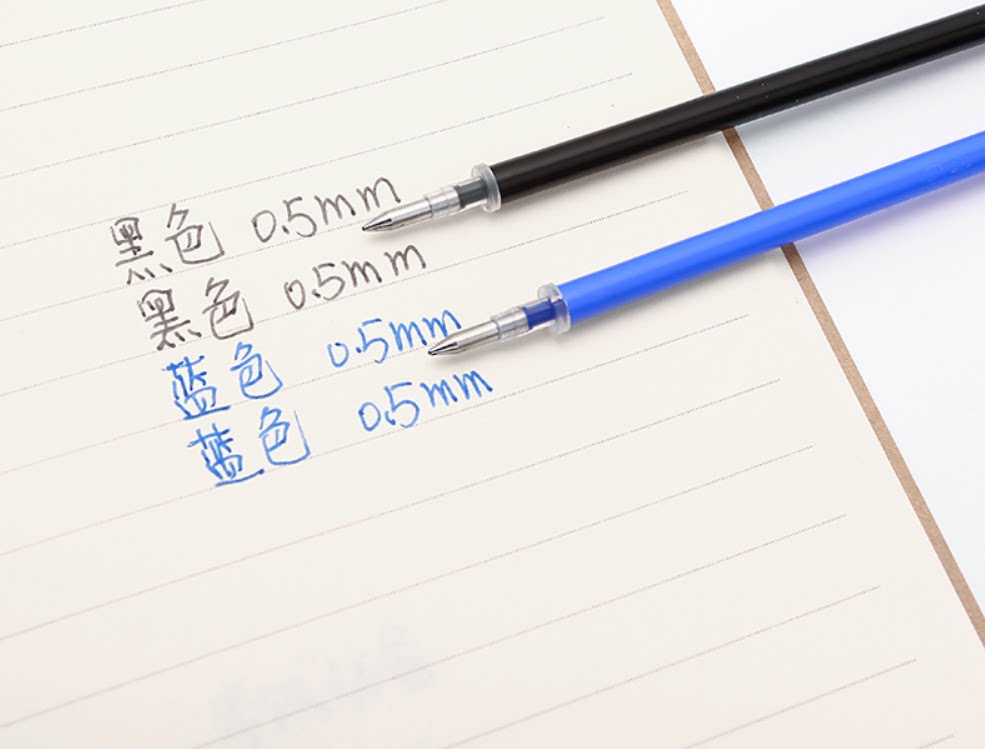 黑色 0.5mm
黑色 0.5mm
蓝色 0.5mm
蓝色 0.5mm